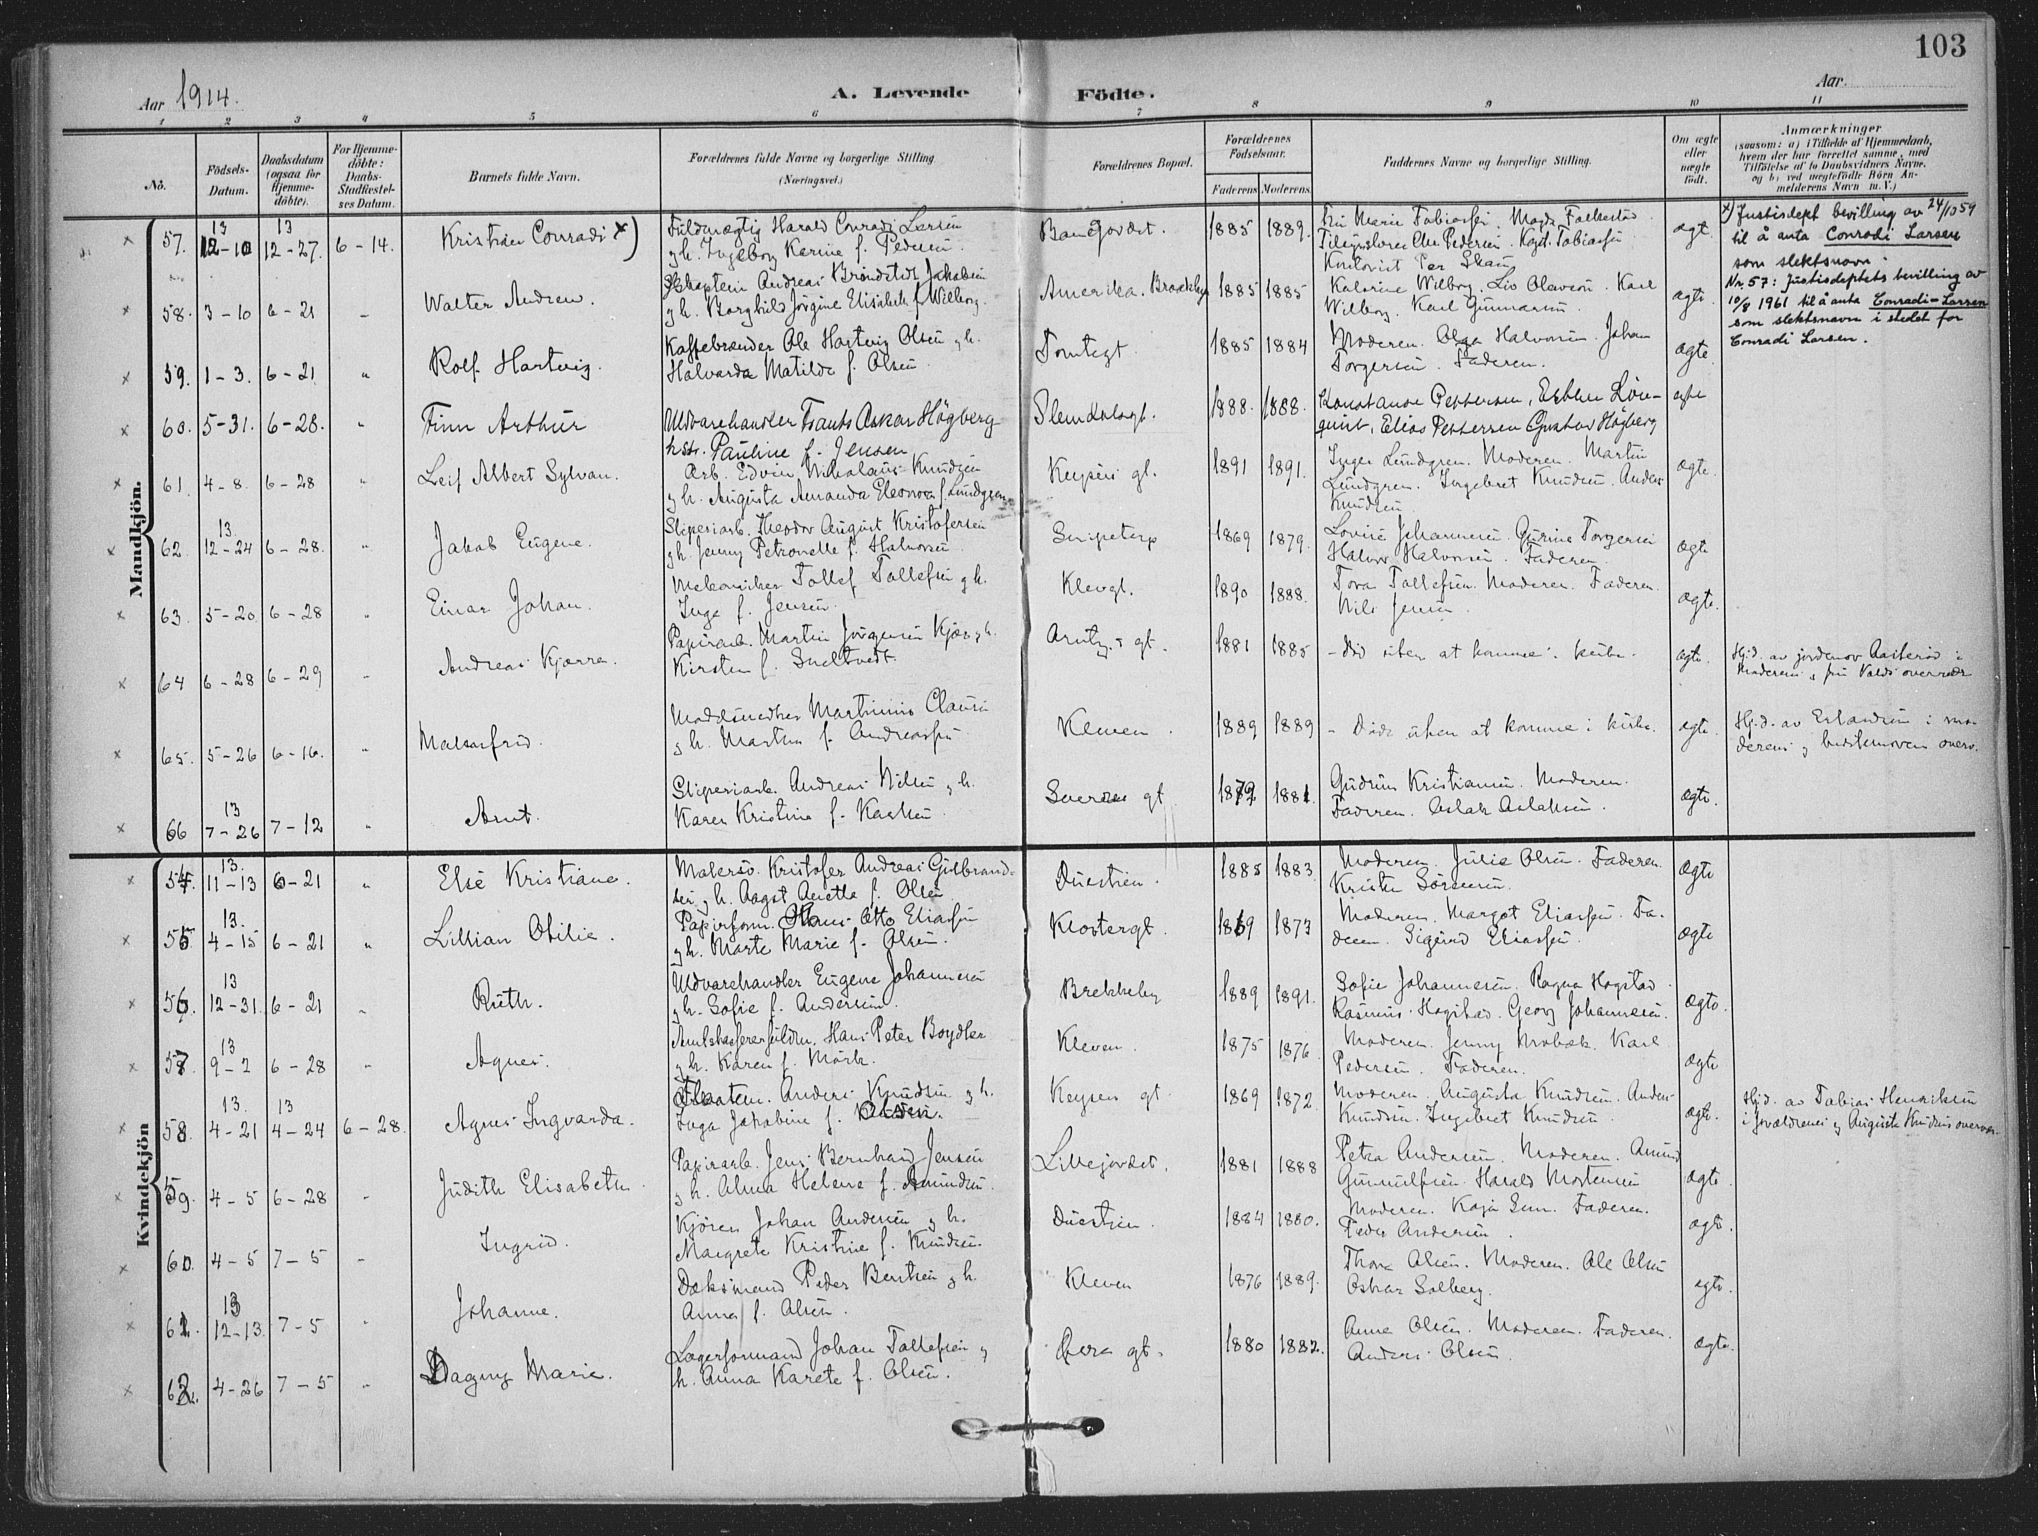 103
Aar 1914.
A. Levende Födte.
Aar
1 2 3 4 5 6 7 8 9 10 11
No.
Födsels-Datum.
Daabsdatum (ogsaa for Hjemme-döbte).
For Hjemme-döbte: Daabs-Stadfæstel-ses Datum.
Barnets fulde Navn.
Forældrenes fulde Navne og borgerlige Stilling (Næringsvei.)
Forældrenes Bopæl.
Forældrenes Födselsaar.
Faderens Moderens
Faddernes Navne og borgerlige Stilling.
Om ægte eller uægte födt.
Anmærkninger
(saasom: a) i Tilfælde af Hjemmedaab, hvem der har forrettet samme, med Tilföielse af to Daabsvidners Navne. og b) ved uægtefödte Börn An-melderens Navn m. V.)
Mandkjön.
57. 13 12-10 13 12-27. 6-14. Kristian Conradi x)
Fuldmægtig Harald Conradi Larsen
g h. Ingeborg Karine f. Pedersen.
1885 1889. ægt.
x) Justisdept bevilling av 24/10 59
til å anta Conradi Larsen
som slektsnavn.
Nr. 57: Justisdeptets bevilling av
10/8 1961 til å anta Conradi-Larsen
som slektsnavn i stedet for
Conradi Larsen.
58. 3-10 6-21 " Walter Andrew.
g h. Borghild Jörgine Elisabeth f. Wilborg.
Amerika. 1885 1885
Katarine Wilborg. Liv Olavesen. Karl
Wilborg. Karl Gunnarsen. ægte.
59. 1-3. 6-21 " Rolf Hartvig.
Kaffebrænder Ole Hartvig Olsen g h.
Halvarda Matilde f. Olsen.
Tomtegt 1885 1884
Moderen. Olga Halvorsen. Johan
Torgersen. Faderen. ægte.
60. 5-31. 6-28. " Finn Arthur
Uldvarehandler Frants Oskar Högberg
h str. Pauline f. Jensen
Plemdalsgt. 1888. 1888.
Konstanse Pettersen, Esther Lön-
quist, Elias Pettersen Gustav Högberg
61. 4-8. 6-28 " Leif Albert Sylvan.
Arb. Edvin Nikolaus Knudsen
g h. Augusta Amanda Eleonora f. Lundgren
Keysers gt. 1891 1891.
Inger Lundgren. Moderen. Martin
Lundgren. Ingebret Knudsen. Anders
Knudsen. ægte.
62. 13 12-24 6-28. " Jakob Eugene.
Sliperiarb. Theodor August Kristofersen
g h. Jenny Petronelle f. Halvorsen.
Snipetorp 1869 1879.
Lovise Johannesen. Gurine Torgersen
Halvor Halvorsen. Faderen. ægte
63. 5-20 6-28 " Einar Johan.
Mekaniker Tollef Tollefsen g h.
Inga f. Jensen.
Klevgt. 1890 1888.
Tora Tollefsen. Moderen. Faderen.
Nils Jensen. ægte.
64 6-28 6-29 " Andreas Kjærra.
Papirarb. Martin Jörgensen Kjær g h.
Kirsten f. Sneltvedt.
Arntz.s gt. 1881 1885
- Död uten at komme i kirke. ægte.
Hj.d. av jordmor Aasterød i
Moderens g fru Valds overvær
65. 5-26 6-16. "
g h. Marthe f. Andreassen.
Kleven. 1889 1889
- Döde uten at komme i kirke. ægte.
Hj.d. av Erlandsen i mo-
derens g bedstemorens overv.
66 13 7-26 7-12 " Arnt.
Sliperiarb. Andreas Nilsen g h.
Karen Kristine f. Karlsen.
1872 1881
Gudrun Kristiansen. Moderen.
Faderen. Aslak Aslaksen. ægte.
Kvindekjön
54. 13. 11-13 6-21 " Else Kristiane.
Malersv. Kristofer Andreas Gulbrand-
sen g h. Aagot Anette f. Olsen
Duestien. 1885 1883.
Moderen. Julie Olsen. Faderen.
Kristen Sörensen. ægte
55 13. 4-15 6-21 " Lillian Otilie.
Papirform. Hans Otto Eliassen
g h. Marte Marie f. Olsen.
Klostergt. 1869 1873
Moderen. Margot Eliassen. Fa-
deren. Sigurd Eliassen. ægte
56. 13 12-31. 6-21 " Ruth.
Uldvarehandler Eugene Johannesen
g h. Sofie f. Andersen.
Brekkeby 1889 1891.
Sofie Johannesen. Ragna Hogstad.
Rasmus Hogstad. Georg Johannesen. ægte.
57. 13 9-2 6-28 " Agnes.
Amtskassererfuldm. Hans Peter Boydler
g h. Karen f. Mörk.
Kleven. 1875 1876
Moderen. Jenny Mobæk. Karl
Pedersen. Faderen. ægte
58. 13. 4-21 13 4-24 6-28. Agnes Ingvarda.
Anders Knudsen g h.
Inga Jakobine f. Olsen.
Keysers gt. 1869 1872.
Moderen. Augusta Knudsen. Anders
Knudsen. Ingebret Knudsen. ægte.
Hj.d. av Tobias Henriksen
i forældrenes g Augusta Knudsens overvær.
59. 4-5 6-28 " Judith Elisabeth.
Papirarb. Jens Bernhard Jensen
g h. Alma Helene f. Amundsen.
Lillejordet. 1881 1888
Petra Andersen. Moderen. Amund
Gunnulfsen. Harald Mortensen ægte
60. 4-5 7-5 " Ingrid.
Kjörer Johan Andersen g h.
Margrete Kristine f. Knudsen.
Duestien. 1884 1880.
Moderen. Kaja Sem. Faderen.
Peder Andersen. ægte.
61. 13 12-13. 7-5 " Johanne.
Doksmand Peder Berntsen g h.
Anna f. Olsen.
Kleven 1876 1889.
Thora Olsen. Moderen. Ole Olsen
Oskar Solberg. ægte.
62. 4-26 7-5 " Dagny Marie.
Lagerformand Johan Tollefsen g
h. Anna Karete f. Olsen.
Övra gt. 1880 1882.
Anna Olsen. Moderen. Faderen.
Anders Olsen. ægte.